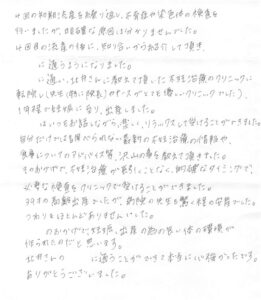 4回の初期流産を繰り返し、不育症や染色体の検査を
行いましたが、明確な原因は分かりませんでした。
4回目の流産の後に、知り合いから紹介して頂き、
に通うようになりました。
に通い、北井さんに教えて頂いた不妊治療のクリニックに
転院し(先生(特に院長)やナースがとても優しいクリニックでした)、
1年程で妊娠に至り、出産しました。
はいつもお話しながら、楽しく、リラックスして受けることができました。
自分だけでは調べられない最新の不妊治療の情報や、
食事についてのアドバイス等、沢山の事を教えて頂きました。
そのおかげで、不妊治療が長引くことなく、的確なタイミングで、
必要な検査をクリニックで受けることができました。
39才の初期出産でしたが、病院の先生も驚く程の安産でした。
つわりもほとんどありませんでした。
のおかげで妊娠、出産の為の良い体の環境が
作られたのだと思います。
北井さんの に通うことができて本当にいい縁がったです。
ありがとうございました。